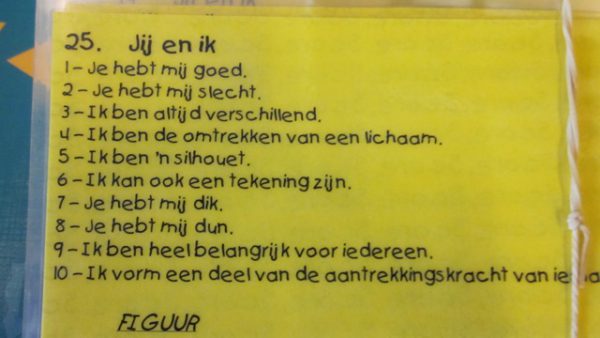 25. Jij en ik
1 - Je hebt mij goed.
2 - Je hebt mij slecht.
3 - Ik ben altijd verschillend.
4 - Ik ben de omtrekken van een lichaam.
5 - Ik ben 'n silhouet.
6 - Ik kan ook een tekening zijn.
7 - Je hebt mij dik.
8 - Je hebt mij dun.
9 - Ik ben heel belangrijk voor iedereen.
10 - Ik vorm een deel van de aantrekkingskracht van
FIGUUR